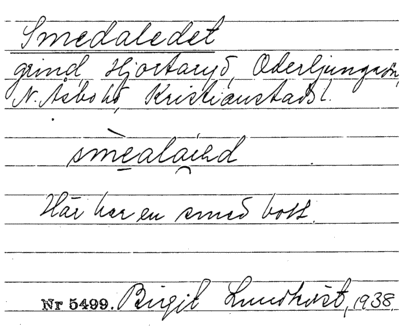 Smedaledet
grind Hjortaryd, Oderljunga sn,
N. Åsbo hd, Kristianstads l.
Här har en smed bott.
Nr 5499. Birgit Lundkvist, 1938